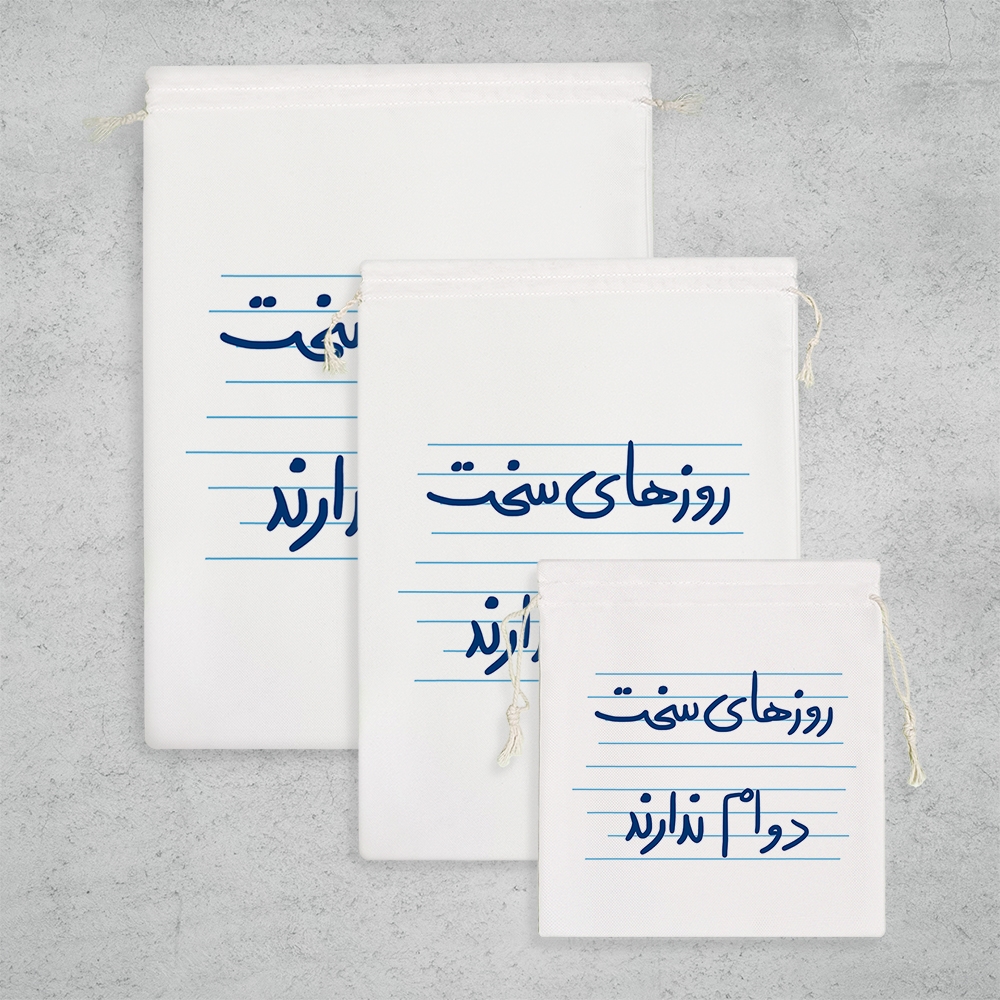 سخت
دارند
روزهای سخت
دارند
روزهای سخت
دوام ندارند